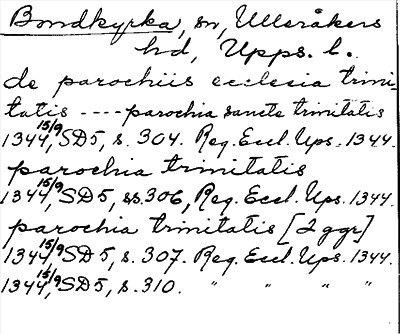 Bondkyrka, sn, Ulleråkers
hd, Upps. l.
de parochiis ecclesia trini-
tatis ---- parochia sancte trinitatis
1344 15/9, SD 5, s. 304. Reg. Eccl. Ups. 1344.
parochia trinitatis
1344 15/9, SD 5, ss. 306, Reg. Eccl. Ups. 1344.
parochia trinitatis [2 ggr]
1344 15/9, SD 5, s. 307. Reg. Eccl. Ups. 1344.
1344 15/9, SD 5, s. 310. " " " "